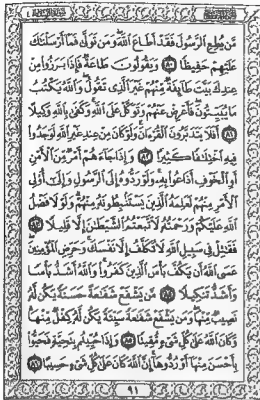 مَّن يُطِعِ ٱلرَّسُولَ فَقَدۡ أَطَاعَ ٱللَّهَۖ وَمَن تَوَلَّىٰ فَمَآ أَرۡسَلۡنَٰكَ
عَلَيۡهِمۡ حَفِيظٗا ٨٠ وَيَقُولُونَ طَاعَةٞ فَإِذَا بَرَزُواْ مِنۡ
عِندِكَ بَيَّتَ طَآئِفَةٞ مِّنۡهُمۡ غَيۡرَ ٱلَّذِي تَقُولُۖ وَٱللَّهُ يَكۡتُبُ
مَا يُبَيِّتُونَۖ فَأَعۡرِضۡ عَنۡهُمۡ وَتَوَكَّلۡ عَلَى ٱللَّهِۚ وَكَفَىٰ بِٱللَّهِ وَكِيلًا
٨١ أَفَلَا يَتَدَبَّرُونَ ٱلۡقُرۡءَانَۚ وَلَوۡ كَانَ مِنۡ عِندِ غَيۡرِ ٱللَّهِ لَوَجَدُواْ
فِيهِ ٱخۡتِلَٰفٗا كَثِيرٗا ٨٢ وَإِذَا جَآءَهُمۡ أَمۡرٞ مِّنَ ٱلۡأَمۡنِ
أَوِ ٱلۡخَوۡفِ أَذَاعُواْ بِهِۦۖ وَلَوۡ رَدُّوهُ إِلَى ٱلرَّسُولِ وَإِلَىٰٓ أُوْلِي
ٱلۡأَمۡرِ مِنۡهُمۡ لَعَلِمَهُ ٱلَّذِينَ يَسۡتَنۢبِطُونَهُۥ مِنۡهُمۡۗ وَلَوۡلَا فَضۡلُ
ٱللَّهِ عَلَيۡكُمۡ وَرَحۡمَتُهُۥ لَٱتَّبَعۡتُمُ ٱلشَّيۡطَٰنَ إِلَّا قَلِيلٗا ٨٣
فَقَٰتِلۡ فِي سَبِيلِ ٱللَّهِ لَا تُكَلَّفُ إِلَّا نَفۡسَكَۚ وَحَرِّضِ ٱلۡمُؤۡمِنِينَۖ
عَسَى ٱللَّهُ أَن يَكُفَّ بَأۡسَ ٱلَّذِينَ كَفَرُواْۚ وَٱللَّهُ أَشَدُّ بَأۡسٗا
وَأَشَدُّ تَنكِيلٗا ٨٤ مَّن يَشۡفَعۡ شَفَٰعَةً حَسَنَةٗ يَكُن لَّهُۥ
نَصِيبٞ مِّنۡهَاۖ وَمَن يَشۡفَعۡ شَفَٰعَةٗ سَيِّئَةٗ يَكُن لَّهُۥ كِفۡلٞ مِّنۡهَاۗ
وَكَانَ ٱللَّهُ عَلَىٰ كُلِّ شَيۡءٖ مُّقِيتٗا ٨٥ وَإِذَا حُيِّيتُم بِتَحِيَّةٖ فَحَيُّواْ
بِأَحۡسَنَ مِنۡهَآ أَوۡ رُدُّوهَآۗ إِنَّ ٱللَّهَ كَانَ عَلَىٰ كُلِّ شَيۡءٍ حَسِيبًا ٨٦
٩١